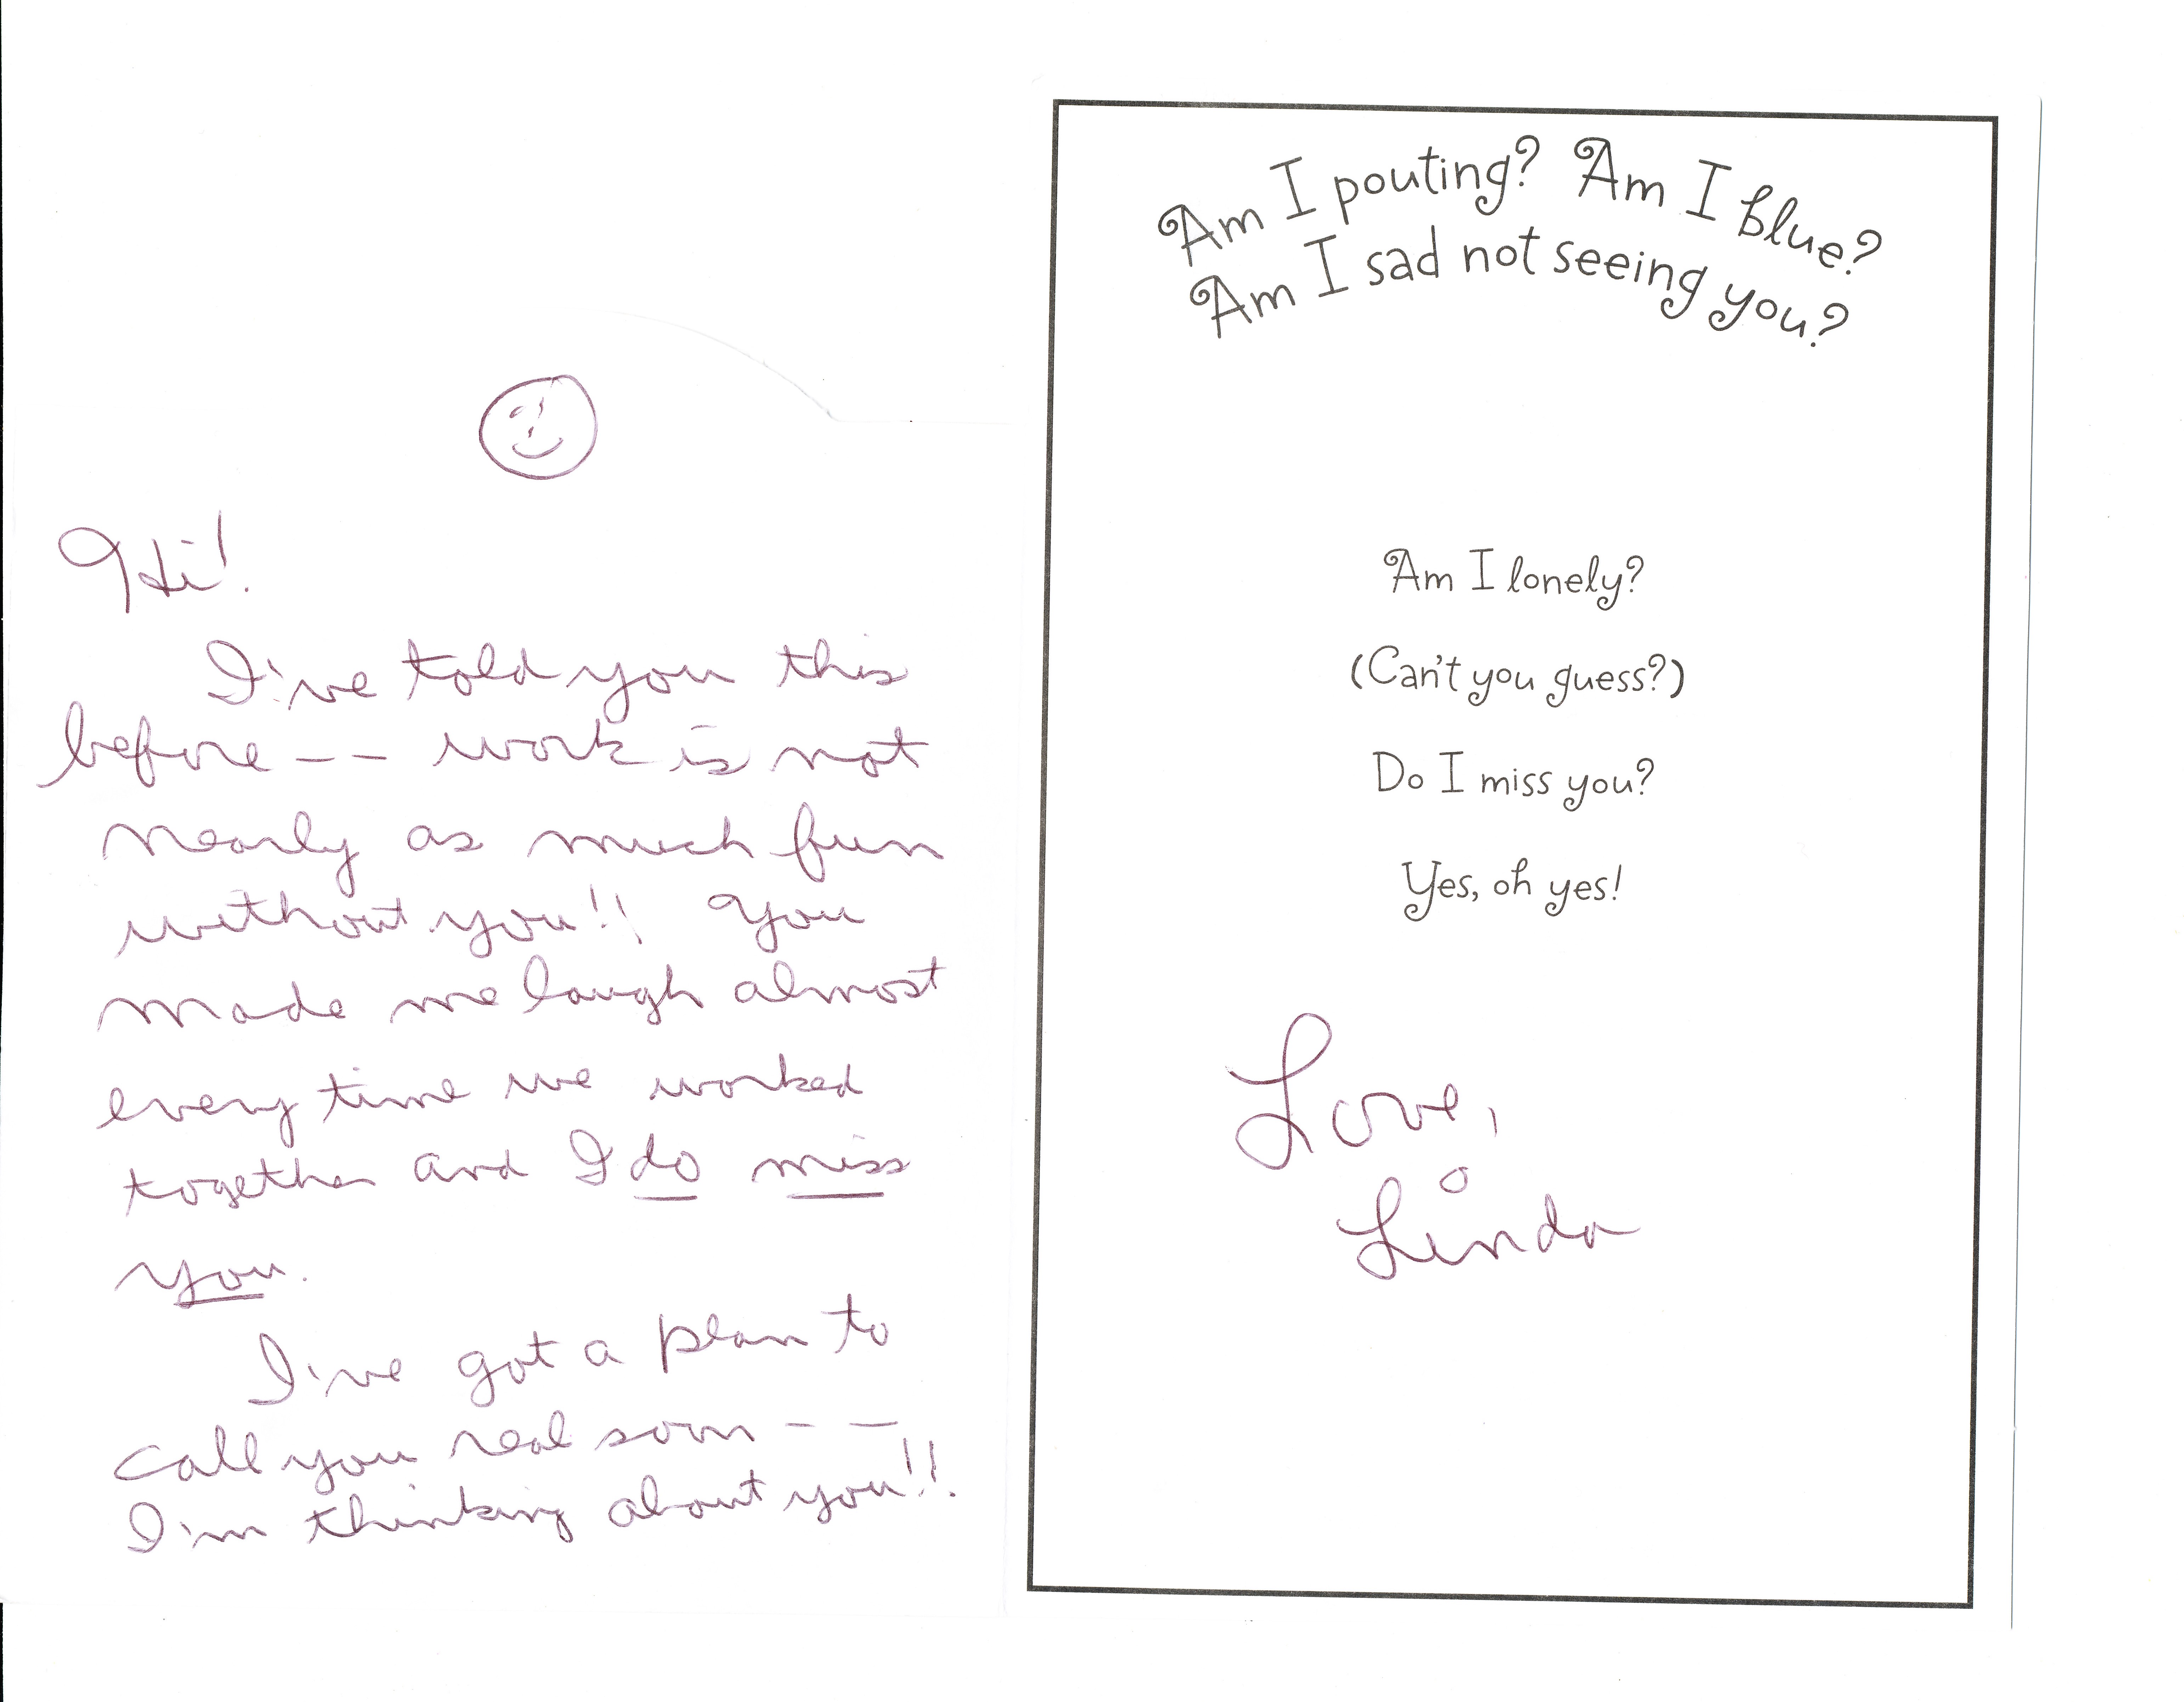 Hi!
I've told you this
before -- work is not
nearly as much fun
without you!! You
made me laugh almost
every time we worked
together and I do miss
you.
I've got a plan to
call you real soon --
I'm thinking about you!!
Am I pouting? Am I blue?
Am I sad not seeing you?
Am I lonely?
(Can't you guess?)
Do I miss you?
Yes, oh yes!
Love,
Linda